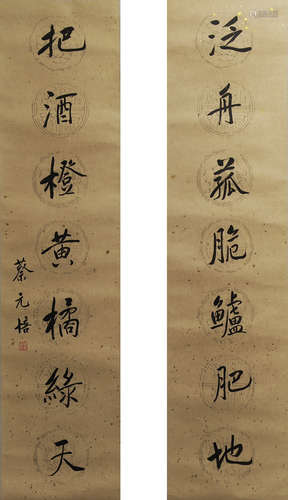 泛舟菰脆鱸肥地
把酒橙黄橘綠天
蔡元培